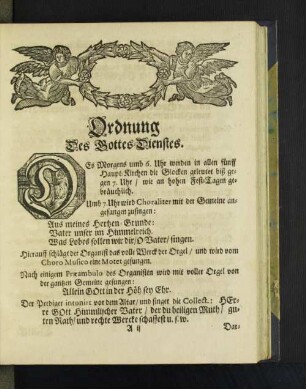 Ordnung
Des Gottes-Dienstes.
DEs Morgens umb 6. Uhr werden in allen fünff
Haupt-Kirchen die Glocken geleutet biß ge-
gen 7. Uhr / wie an hohen Fest-Tagen ge-
bräuchlich.
Umb 7. Uhr wird Choraliter mit der Gemeine an-
gefangen zusingen:
Aus meines Hertzen Grunde:
Vater unser im Himmelreich.
Was Lobes sollen wir dir / O Vater / singen.
Hierauff schlägt der Organist das volle Werck der Orgel / und wird vom
Choro Musico eine Motet gesungen.
Nach einigem Præambulo des Organisten wird mit voller Orgel von
der gantzen Gemeine gesungen:
Allein GOtt in der Höh sey Ehr.
Der Prediger intoniret vor dem Altar / und singet die Collect.: HEr-
re GOtt Himmlischer Vater / der du heiligen Muth / gu-
ten Rath / und rechte Wercke schaffest u. s. w.
A ij
Dar-